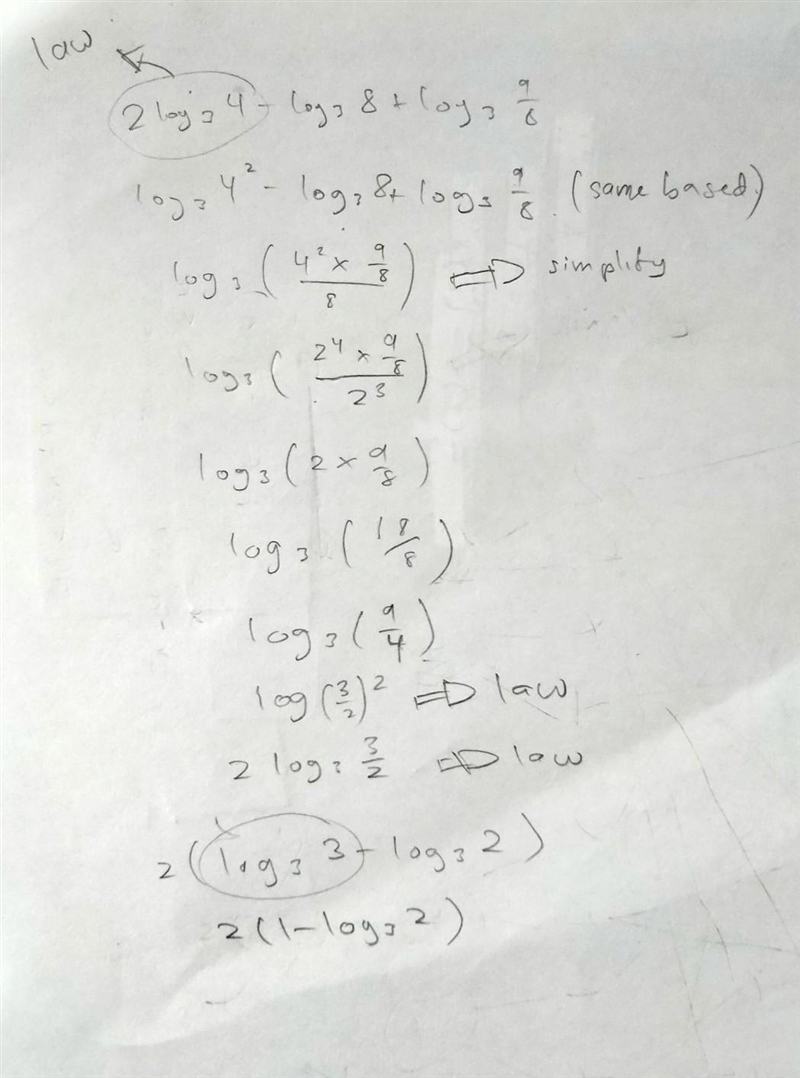 law
2 log₃ 4 - log₃ 8 + log₃ 9/8
log₃ 4² - log₃ 8 + log₃ 9/8 (same based)
log₃ ( (4² × 9/8) / 8 ) ⇒ simplify
log₃ ( (2⁴ × 9/8) / 2³ )
log₃ ( 2 × 9/8 )
log₃ ( 18/8 )
log₃ ( 9/4 )
log (3/2)² ⇒ law
2 log₃ 3/2 ⇒ law
2 ( log₃ 3 - log₃ 2 )
2 ( 1 - log₃ 2 )